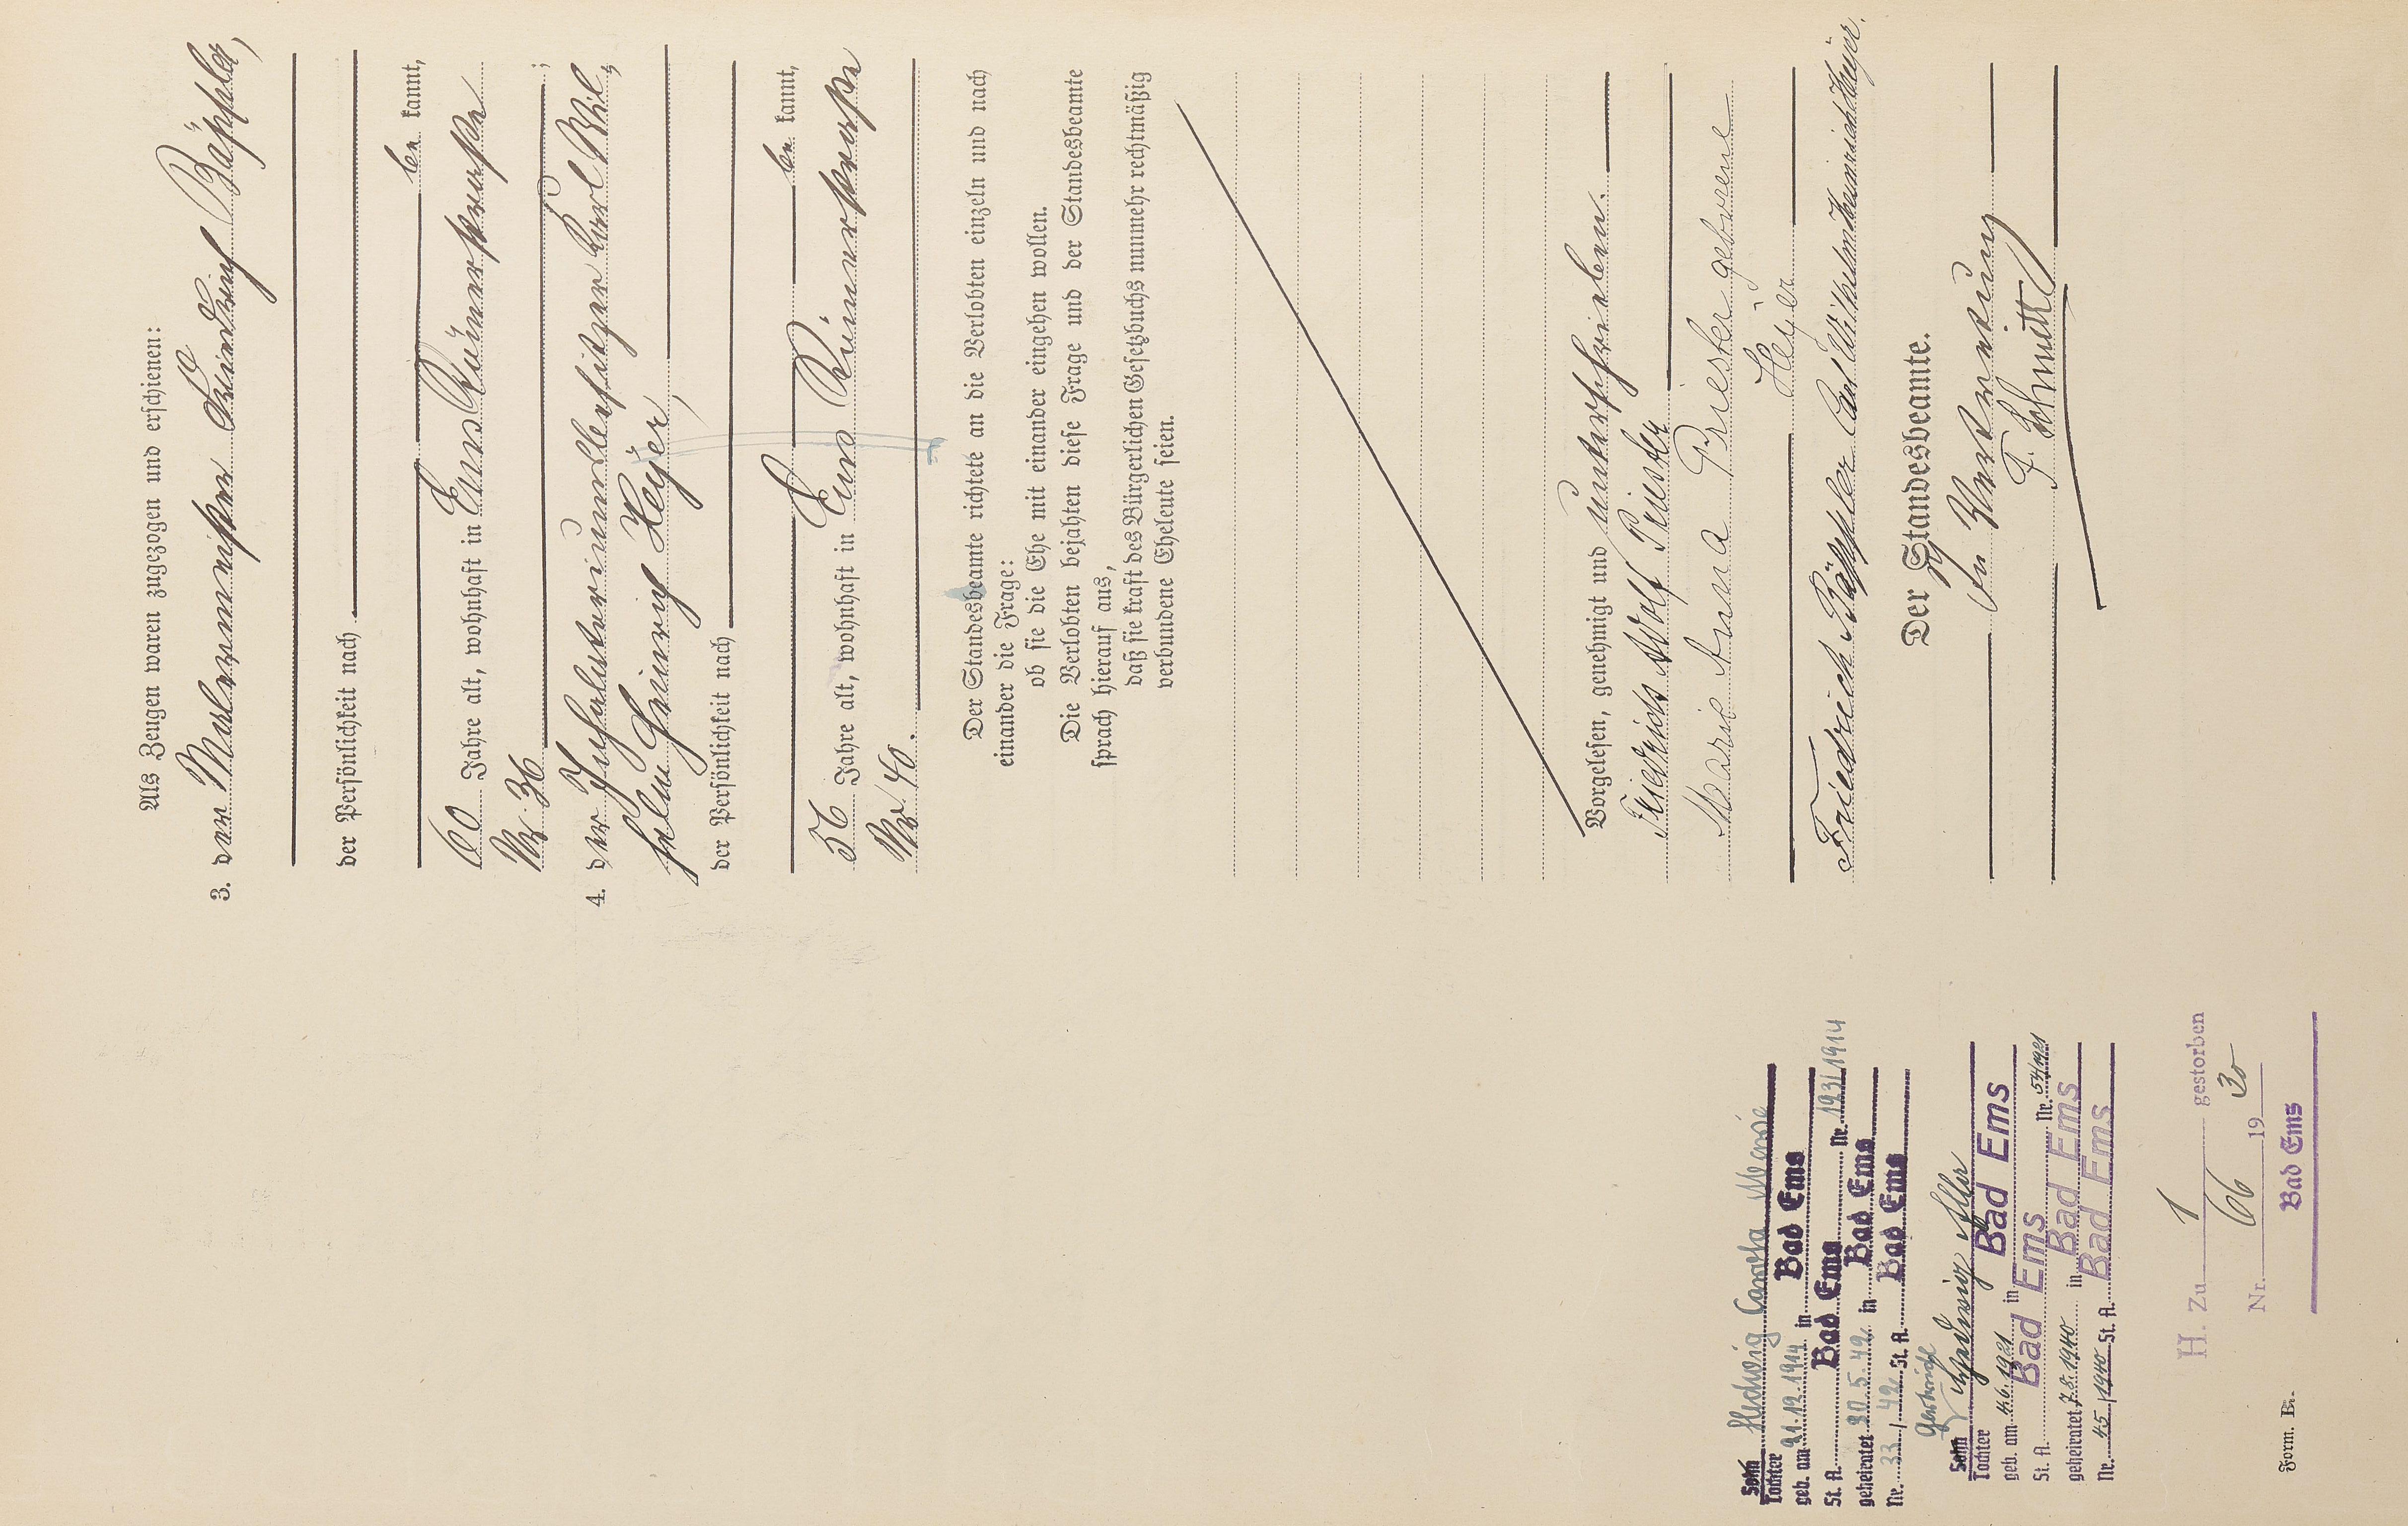 Als Zeugen waren zugezogen und erschienen:
3. der Malermeister Friedrich Bäppler,
der Persönlichkeit nach
be kannt,
60 Jahre alt, wohnhaft in Ems Römerstrasse
Nr 36 ;
4. der Inhalatoriumsbesitzer Karl Wil-
helm Heinrich Heyer,
der Persönlichkeit nach
be kannt,
56 Jahre alt, wohnhaft in Ems Römerstrasse
Nr. 40.
Der Standesbeamte richtete an die Verlobten einzeln und nach
einander die Frage:
ob sie die Ehe mit einander eingehen wollen.
Die Verlobten bejahten diese Frage und der Standesbeamte
sprach hierauf aus,
daß sie kraft des Bürgerlichen Gesetzbuchs nunmehr rechtmäßig
verbundene Eheleute seien.
Vorgelesen, genehmigt und unterschrieben.
Friedrich Adolf Priester
Marie Anna Priester geborene
Heyer
Friedrich Bäppler Carl Wilhelm Heinrich Heyer.
Der Standesbeamte.
In Vertretung
F. Schmitt
Sohn Hedwig Carola Marie
Tochter
geb. am 21.12.1914 in Bad Ems
St. A. Bad Ems Nr. 193/1914
geheiratet 30.5.42 in Bad Ems
Nr. 33 / 42 St. A. Bad Ems
Gertrude
Sohn Hedwig Aller
Tochter
geb. am 4.6.1921 in Bad Ems
St. A. Bad Ems Nr. 54/1921
geheiratet 7.8.1940 in Bad Ems
Nr. 45 / 1940 St. A. Bad Ems
H. Zu 1 gestorben
Nr. 66 19 30
Bad Ems
Form. B.